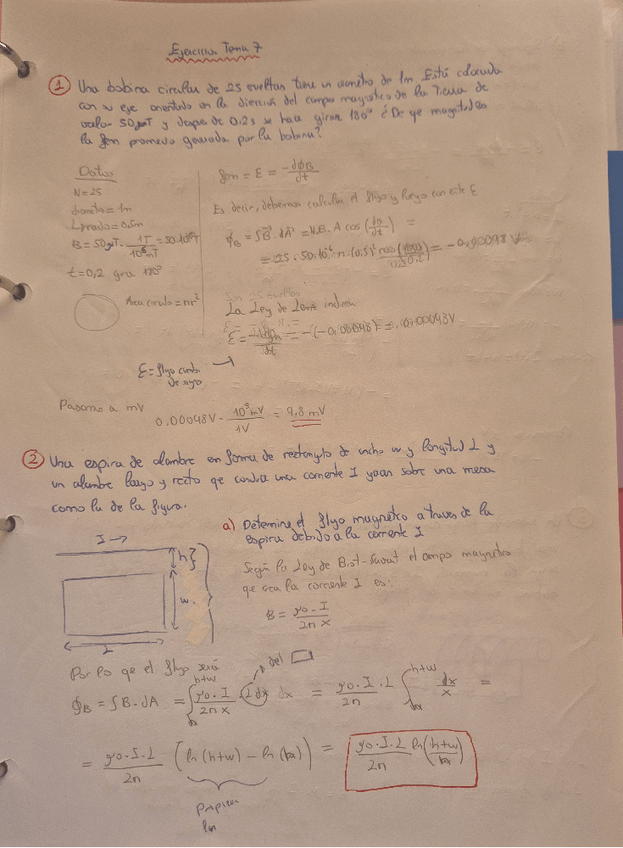 Ejercicios Tema 7
① Una bobina circular de 25 vueltas tiene un diametro de 1m. Está colocada
con su eje orientado en la dirección del campo magnético de la Tierra de
valor 50μT y despues de 0.2s se hace girar 180° ¿De qué magnitud es
la fem promedio generada por la bobina?
Datos
N=25
diametro=1m
B = 50μT · 1T/10⁶μT = 50·10⁻⁶T
t=0,2 gira 180°
Area circulo = πr²
fem = ε = -dϕB/dt
Es decir, debemos calcular el flujo y luego con este ε
ϕB = ∫B·dA = N.B.A cos
= 25·50·10⁻⁶·π·(0.5)² = -0,00098 V
La Ley de Lenz indica
ε = = -(-0,00098) = 0,00098V
ε = flujo
Pasamos a mV
0.00098V · 10³mV/1V = 9,8 mV
② Una espira de alambre en forma de rectangulo de ancho w y longitud L y
un alambre largo y recto que conduce una corriente I yacen sobre una mesa
como la de la figura.
a) Determine el flujo magnético a traves de la
espira debido a la corriente I
I →
h
w
L
Según la Ley de Biot-Savart el campo magnetico
que crea la corriente I es:
B = μ0·I/2π x
Por lo que el flujo será
del
ϕB = ∫B·dA = ∫ μ0·I/2π x · L dx = μ0·I·L/2π ∫ dx/x =
= μ0·I·L/2π (ln(h+w) - ln(h)) = μ0·I·L/2π ln(h+w/h)